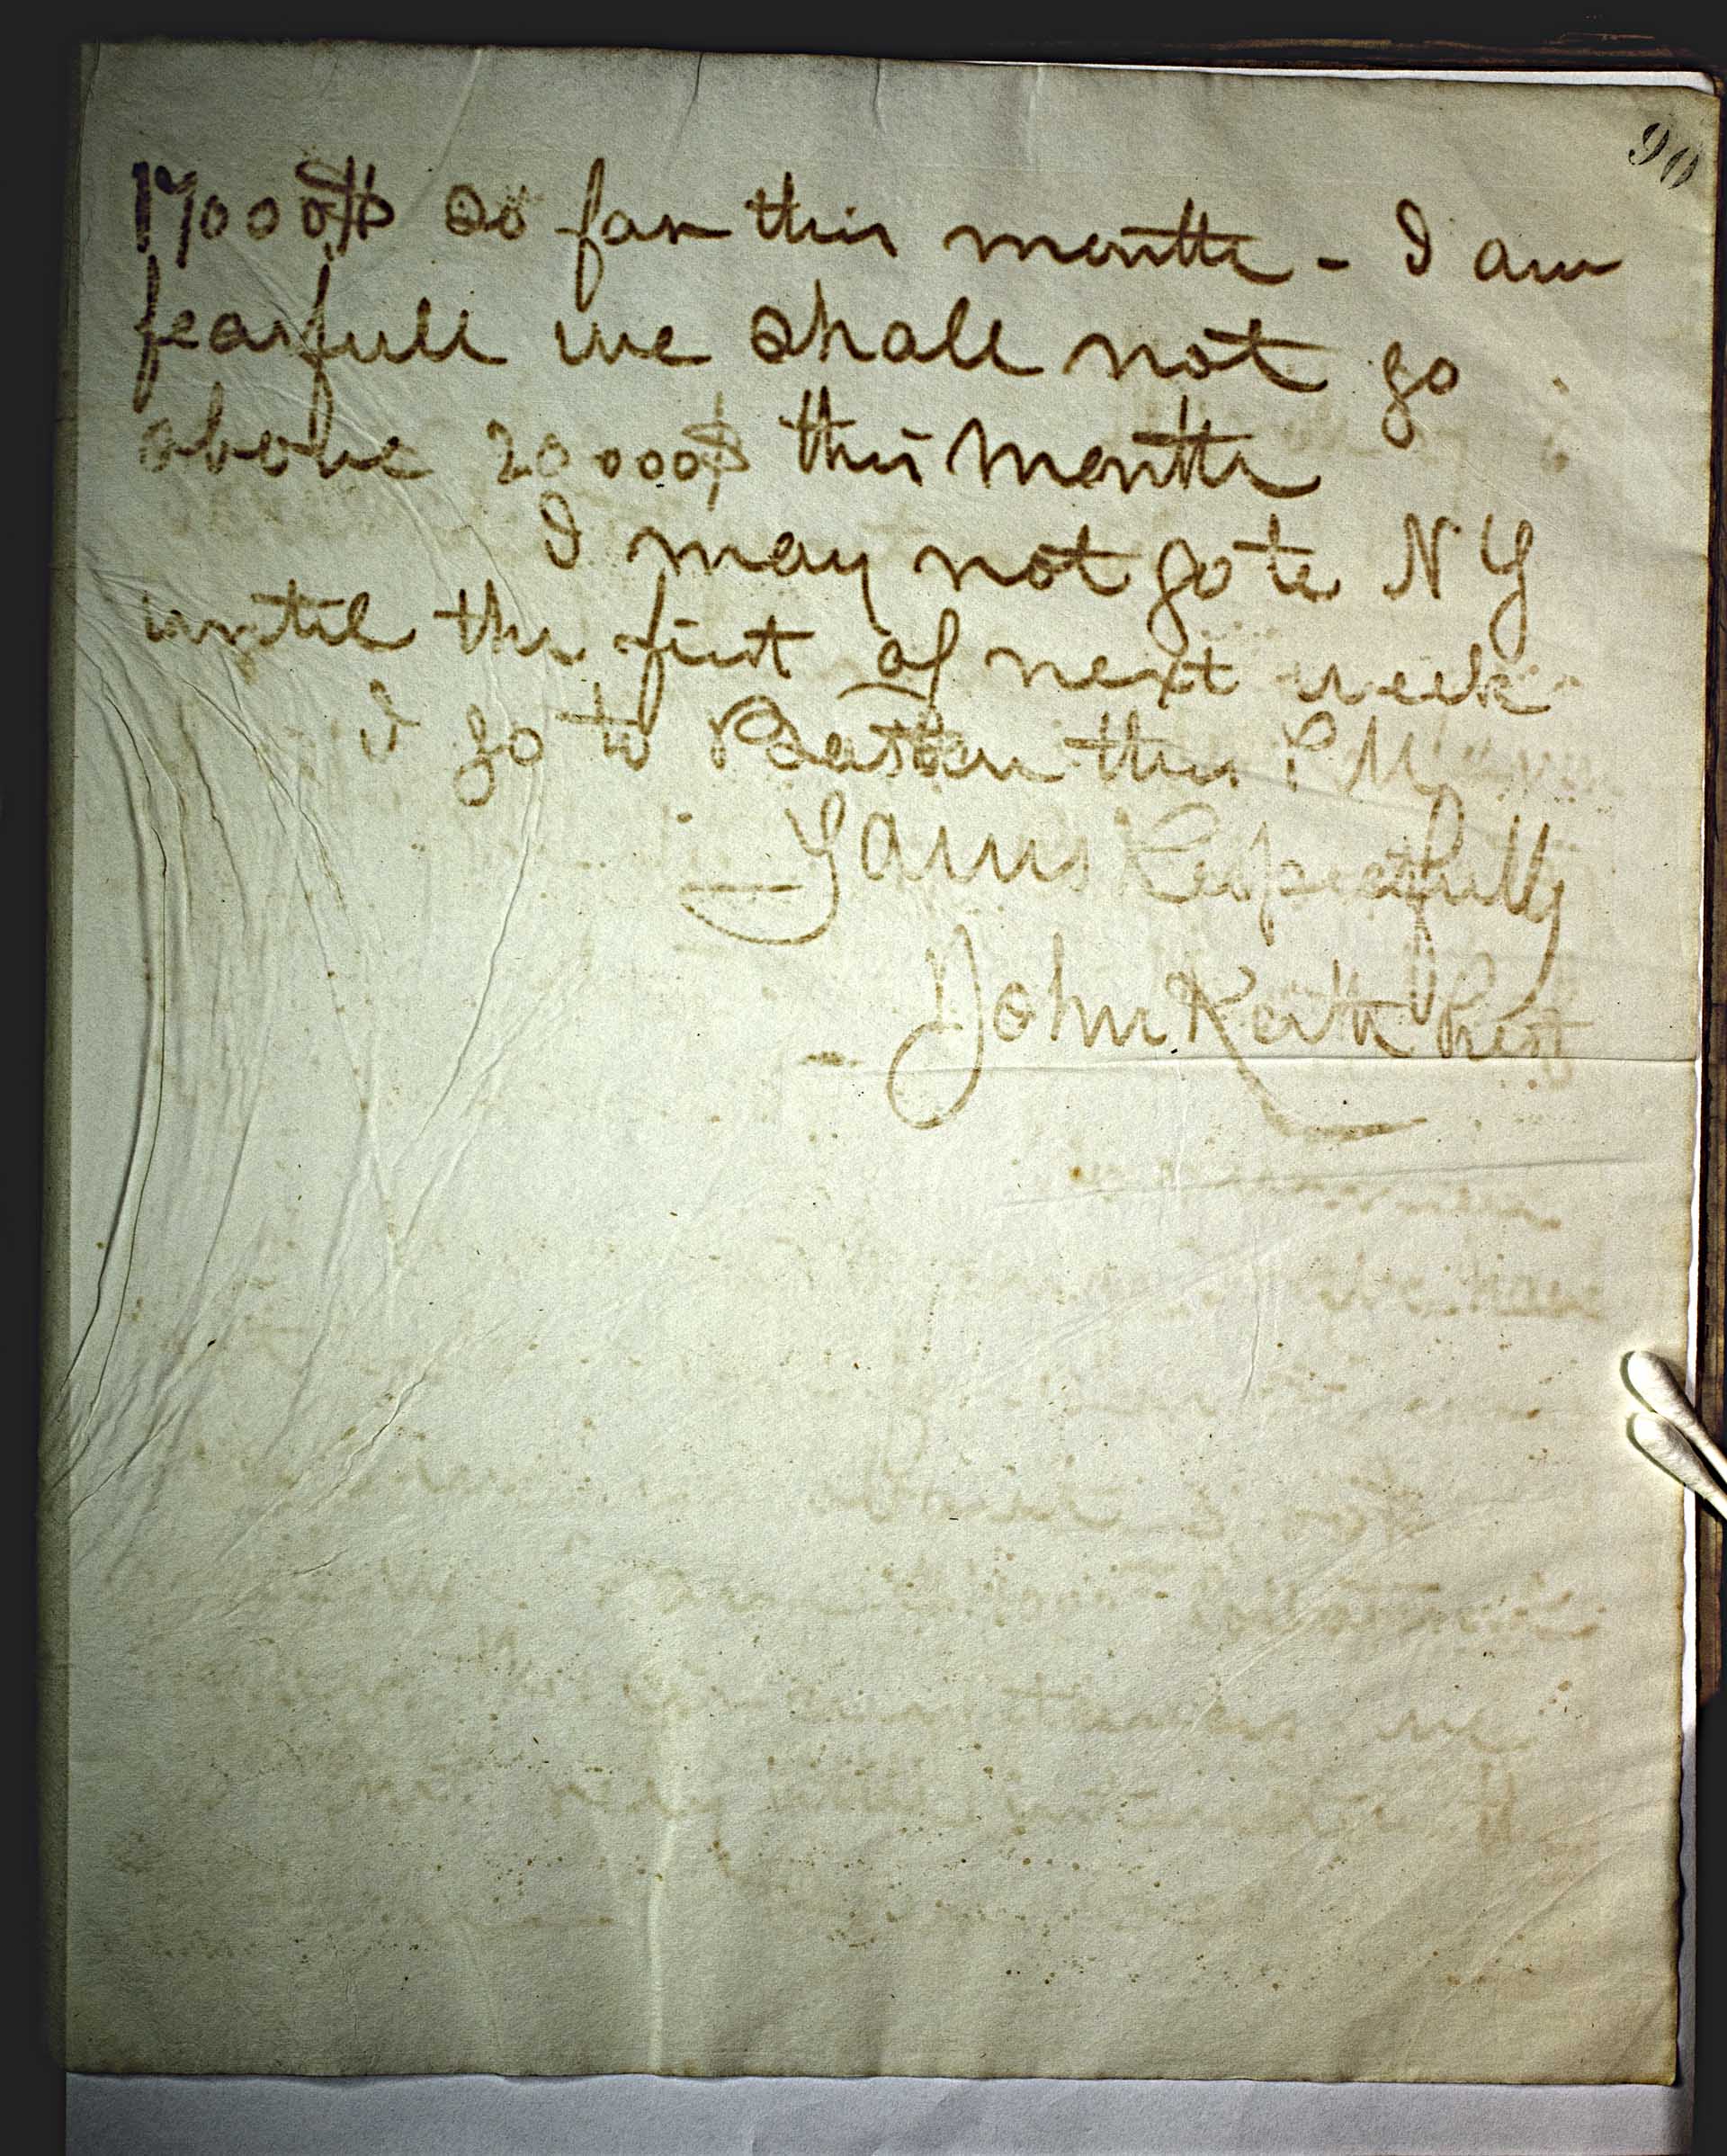 90
17000$ so far this month - I am
fearfull we shall not go
above 20000$ this month
I may not go to N Y
until the first of next week
I go to Boston this P M
Yours Respectfully
John Keith Prest